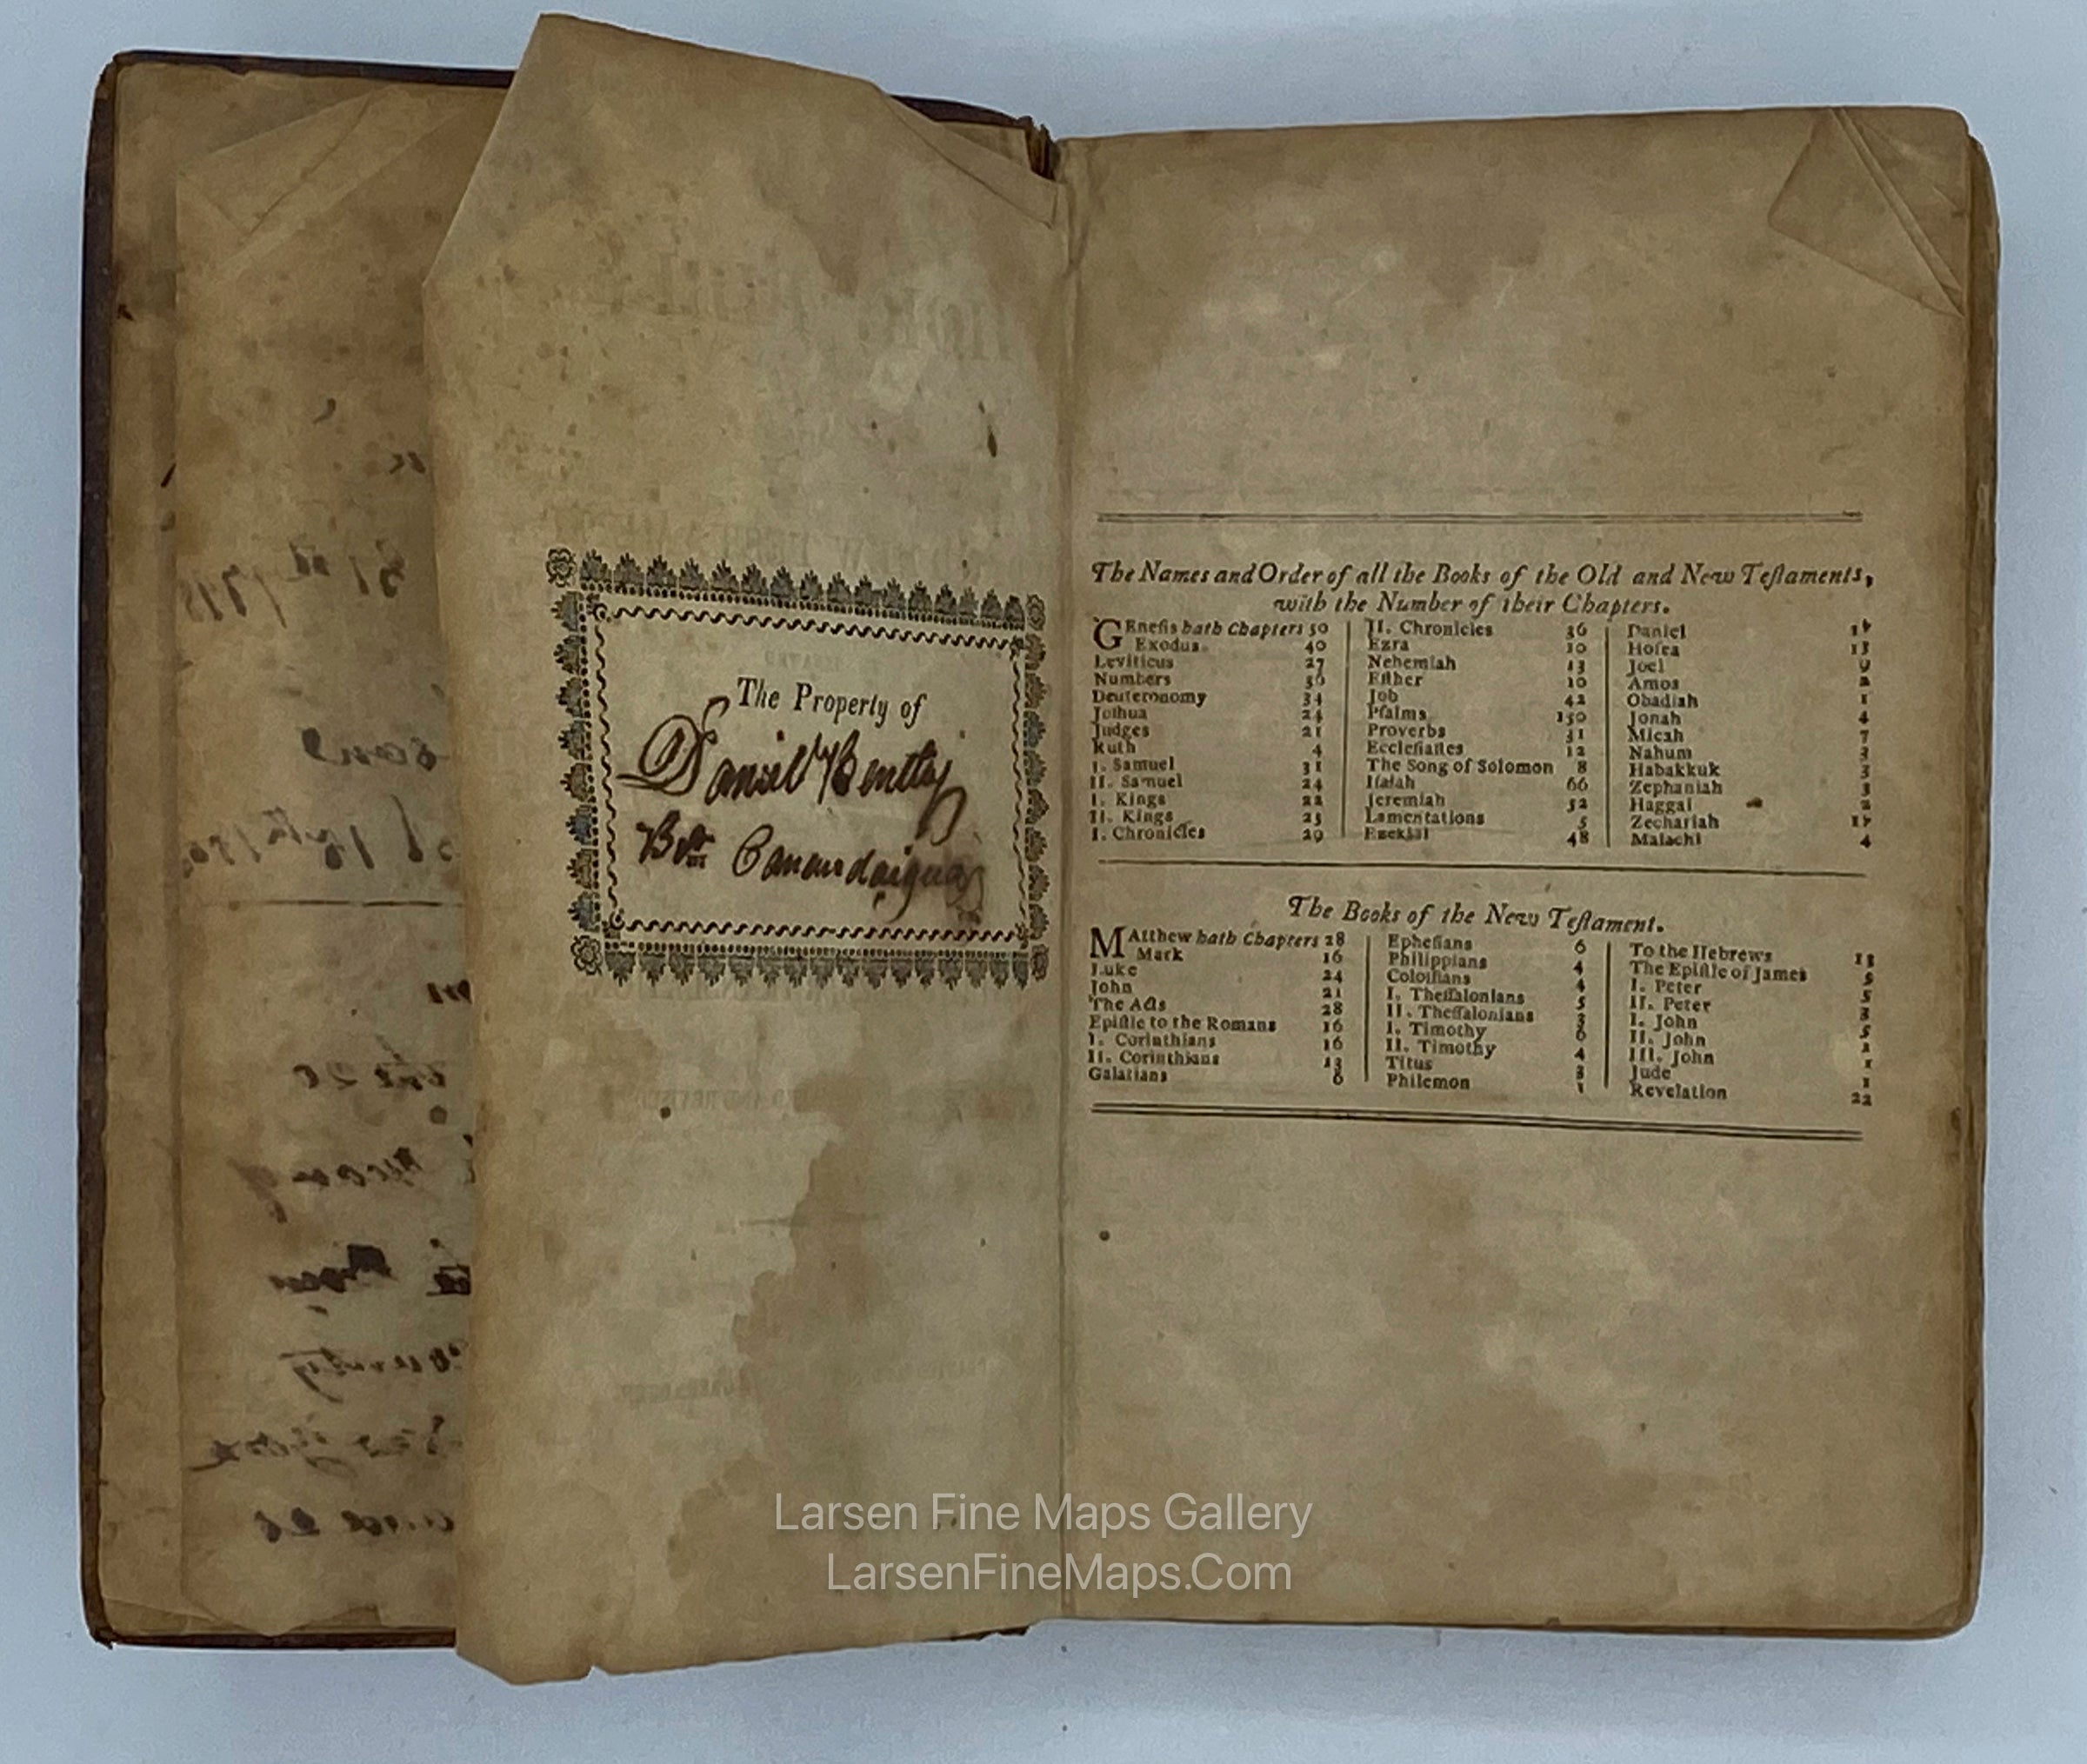 The Property of
Daniel Bentley
Canandaigua
The Names and Order of all the Books of the Old and New Teſtaments,
with the Number of their Chapters.
GEneſis hath Chapters 50
Exodus 40
Leviticus 27
Numbers 36
Deuteronomy 34
Joſhua 24
Judges 21
Ruth 4
I. Samuel 31
II. Samuel 24
I. Kings 22
II. Kings 25
I. Chronicles 29
II. Chronicles 36
Ezra 10
Nehemiah 13
Eſther 10
Job 42
Pſalms 150
Proverbs 31
Eccleſiaſtes 12
The Song of Solomon 8
Iſaiah 66
Jeremiah 52
Lamentations 5
Ezekial 48
Daniel
Hoſea
Joel
Amos
Obadiah 1
Jonah 4
Micah 7
Nahum 3
Habakkuk 3
Zephaniah 3
Haggai 2
Zechariah
Malachi 4
The Books of the New Teſtament.
MAtthew hath Chapters 28
Mark 16
Luke 24
John 21
The Acts 28
Epiſtle to the Romans 16
I. Corinthians 16
II. Corinthians 13
Galatians 6
Epheſians 6
Philippians 4
Coloſſians 4
I. Theſſalonians 5
II. Theſſalonians 3
I. Timothy 6
II. Timothy 4
Titus 3
Philemon 1
To the Hebrews 13
The Epiſtle of James 5
I. Peter 5
II. Peter 3
I. John 5
II. John 1
III. John 1
Jude 1
Revelation 22
Larsen Fine Maps Gallery
LarsenFineMaps.Com